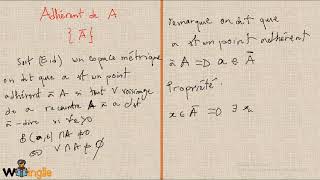 Adhérent de A
{Ā}
Soit (E,d) un espace métrique
on dit que a est un point
adhérent à A si tout V voisinage
de a recontre A à a c'st
à-dire si ∀ε>0
B(a,ε) ∩ A ≠ ∅
⇔ V ∩ A ≠ ∅
remarque on dit que
a st un point adhérent
à A ⇒ a ∈ Ā
Propriété
x ∈ Ā ⇒ ∃ xₙ